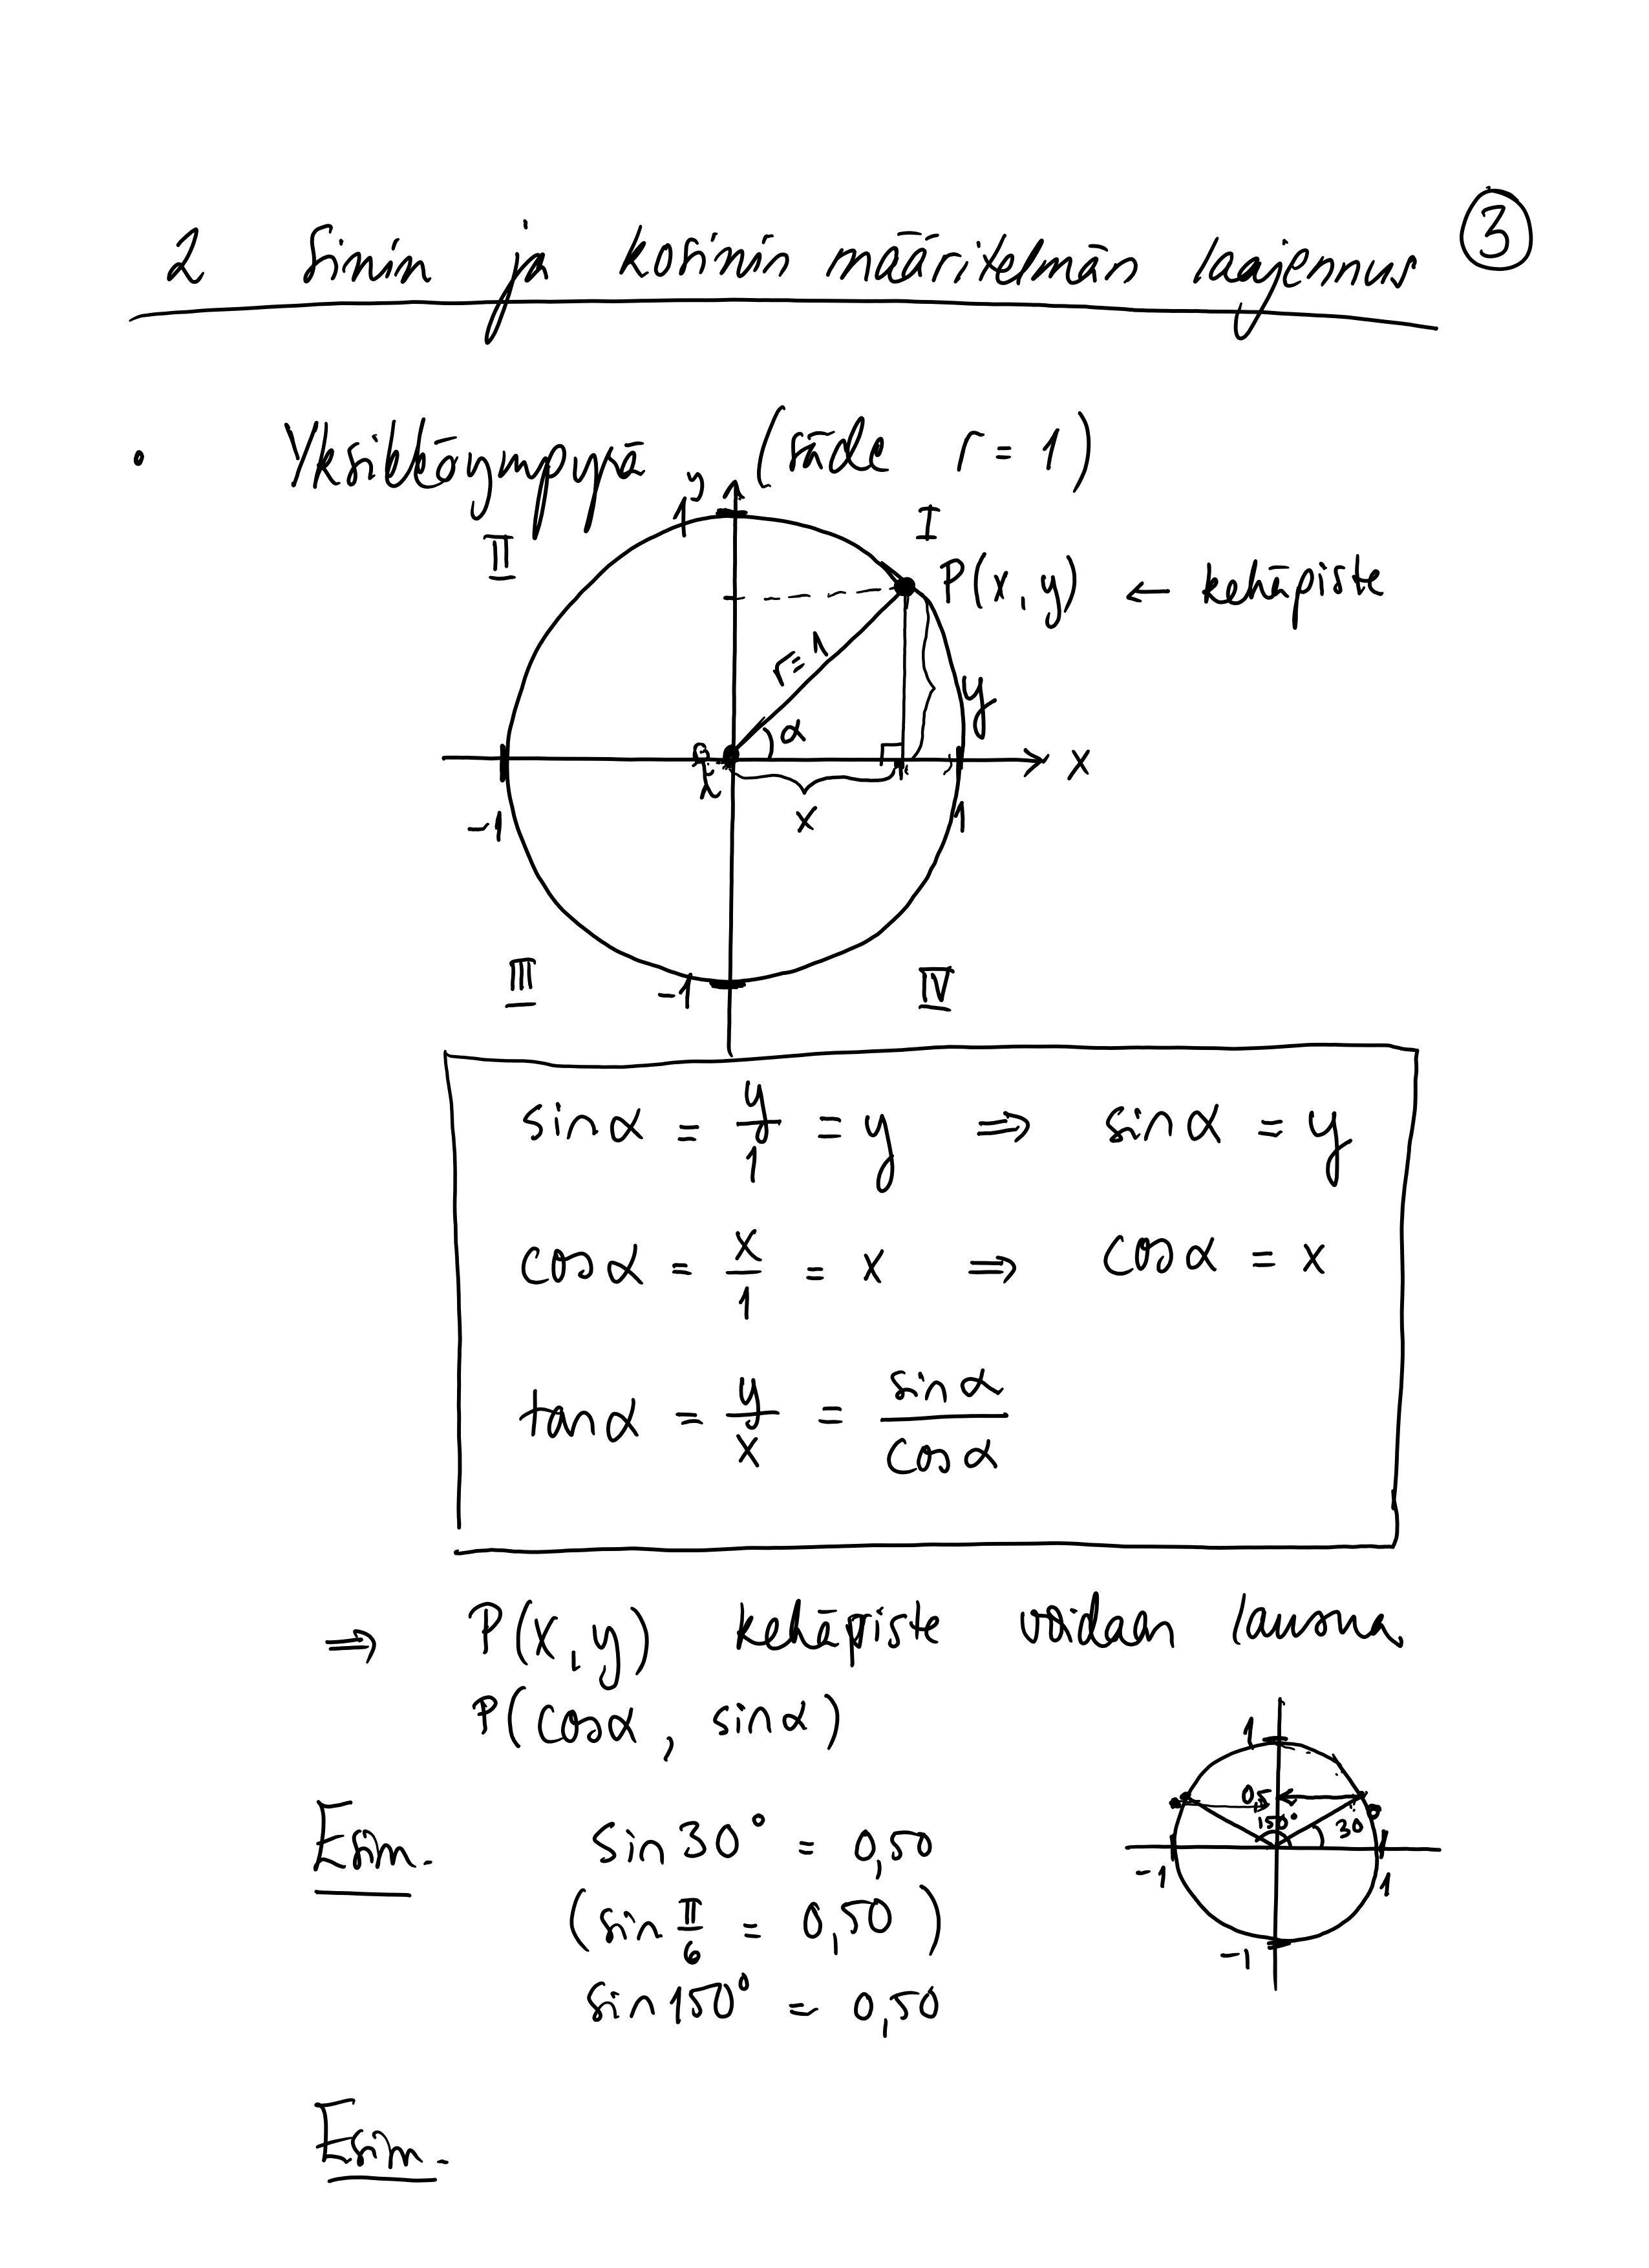 2 Sinin ja kosinin määritelmän laajennus ③
• Yksikköympyrä (säde r = 1)
y
1
I
II
P(x, y) ← kehäpiste
r = 1
y
α
x
-1
x
1
III
-1
IV
sin α = y/1 = y ⇒ sin α = y
cos α = x/1 = x ⇒ cos α = x
tan α = y/x = sin α / cos α
⇒ P(x, y) kehäpiste voidaan lausua
P(cos α, sin α)
1
0,5
150°
30°
-1
1
-1
Esim. sin 30° = 0,50
(sin π/6 = 0,50)
sin 150° = 0,50
Esim.